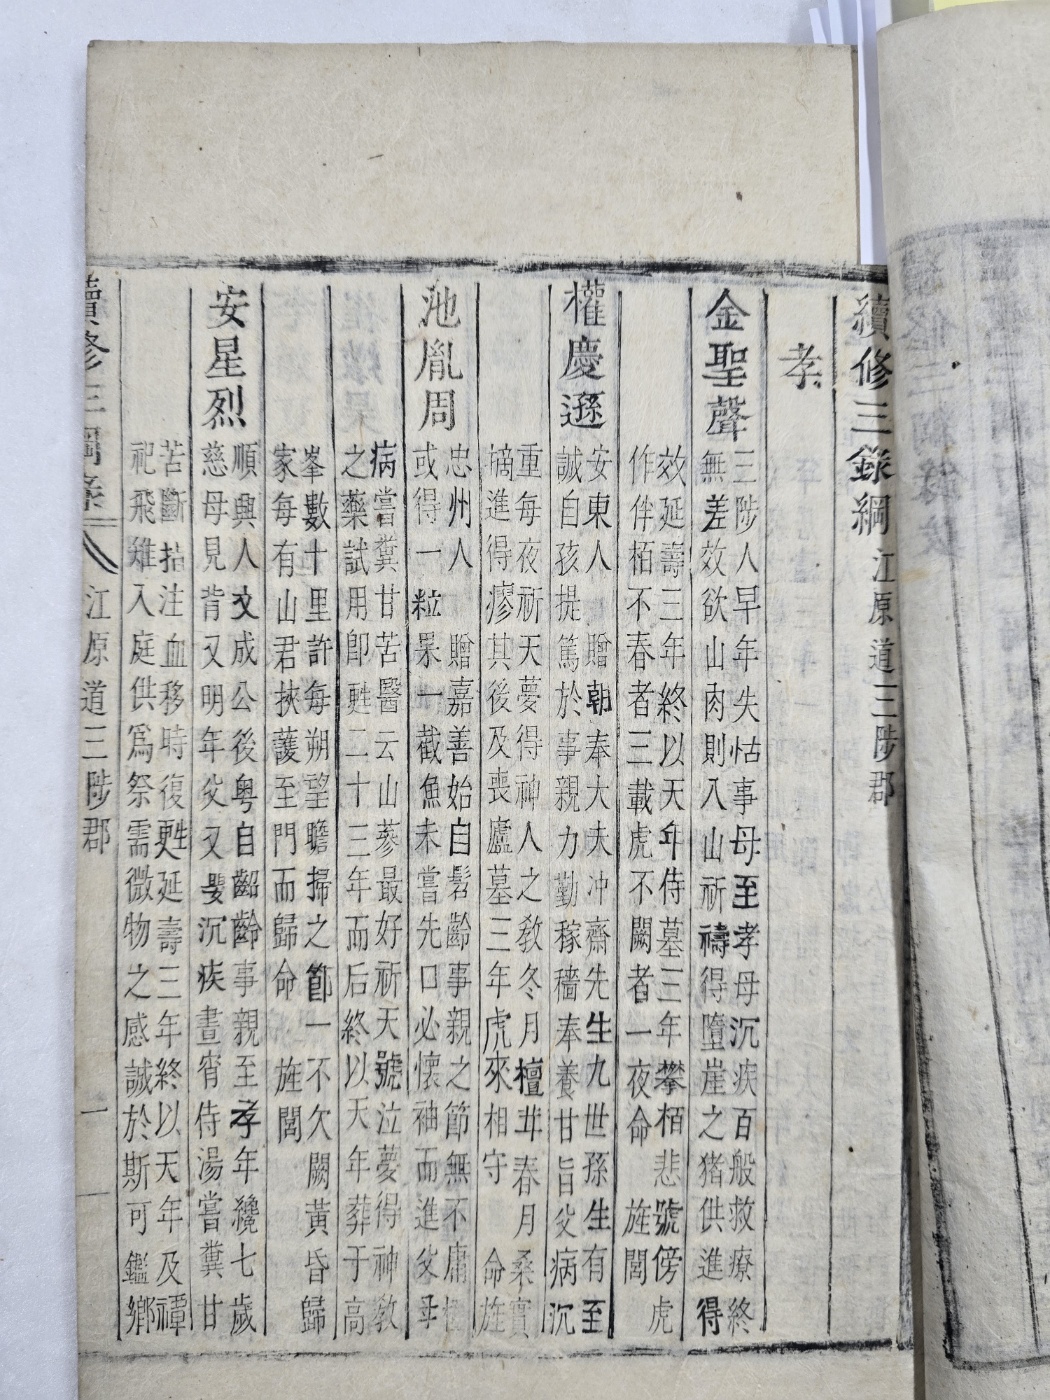 續修三錄綱 江原道三陟郡
孝
金聖聲
三陟人早年失怙事母至孝母沉疾百般救療終
無差效欲山肉則入山祈禱得墮崖之猪供進得
效延壽三年終以天年侍墓三年攀栢悲號傍虎
作伴栢不春者三載虎不闕者一夜命 旌閭
權慶遜
安東人 贈朝奉大夫冲齋先生九世孫生有至
誠自孩提篤於事親力勤稼穡奉養甘旨父病沉
重每夜祈天夢得神人之敎冬月檀芽春月桑實
摘進得瘳其後及喪廬墓三年虎來相守 命旌
池胤周
忠州人 贈嘉善始自髫齡事親之節無不庸
或得一粒果一截魚未嘗先口必懷袖而進父母
病嘗糞甘苦醫云山蔘最好祈天號泣夢得神敎
之藥試用卽甦二十三年而后終以天年葬于高
峯數十里許每朔望瞻掃之節一不欠闕黃昏歸
家每有山君挾護至門而歸命 旌閭
安星烈
順興人文成公後粤自齠齡事親至孝年纔七歲
慈母見背又明年父又嬰沉疾晝宵侍湯嘗糞甘
苦斷指注血移時復甦延壽三年終以天年及禫
祀飛雉入庭供爲祭需微物之感誠於斯可鑑鄉
續修三綱錄 江原道三陟郡 一